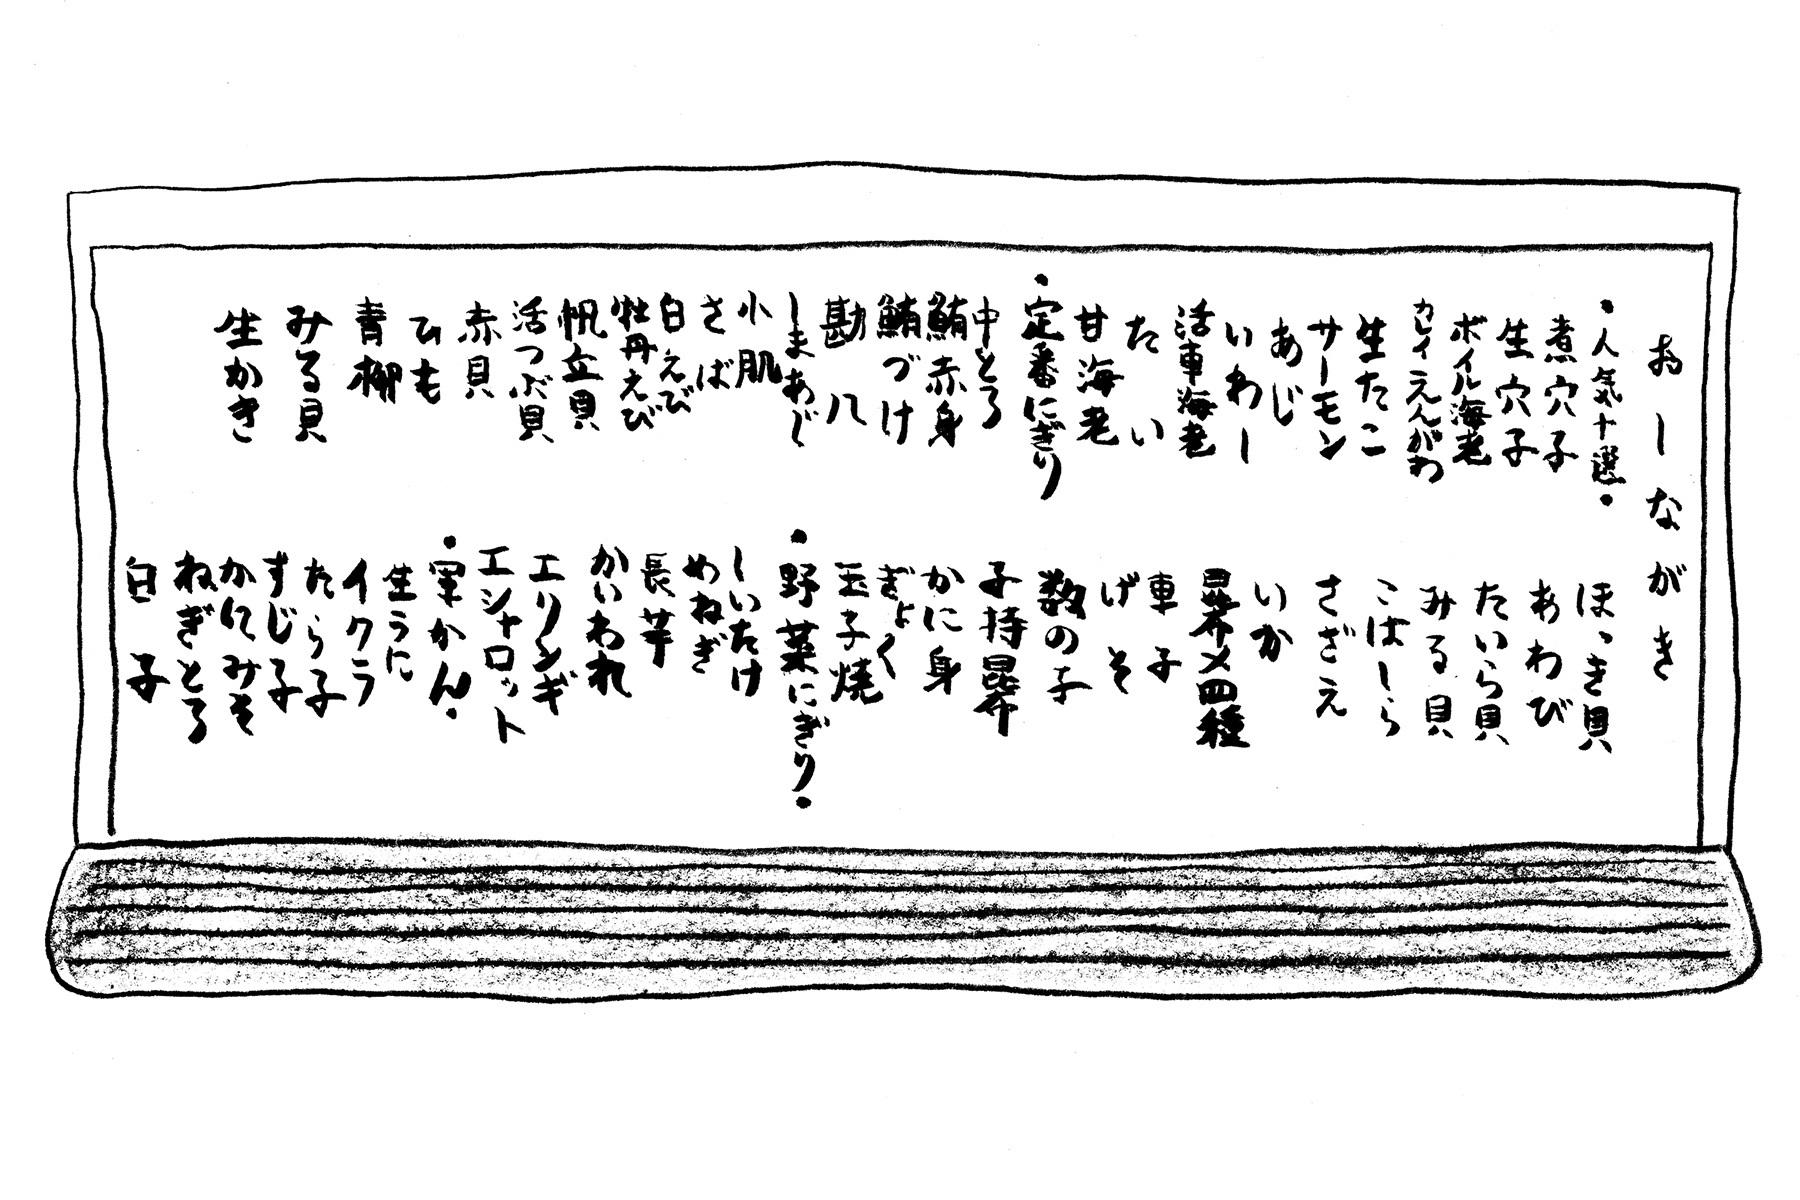 おしながき
・人気十選・
煮穴子
生穴子
ボイル海老
カレイえんがわ
生たこ
サーモン
あじ
いわし
たい
活車海老
甘海老
・定番にぎり
中とろ
鮪赤身
鮪づけ
勘八
しまあじ
小肌
さば
白えび
牡丹えび
帆立貝
活つぶ貝
赤貝
ひも
青柳
みる貝
生かき
ほっき貝
あわび
たいら貝
みる貝
こはしら
さざえ
いか
昆布〆四種
車子
げそ
数の子
子持昆布
かに身
ぎょく
玉子焼
・野菜にぎり・
しいたけ
めねぎ
長芋
かいわれ
エリンギ
エシャロット
・軍かん・
生うに
イクラ
たら子
すじ子
かにみそ
ねぎとろ
白子